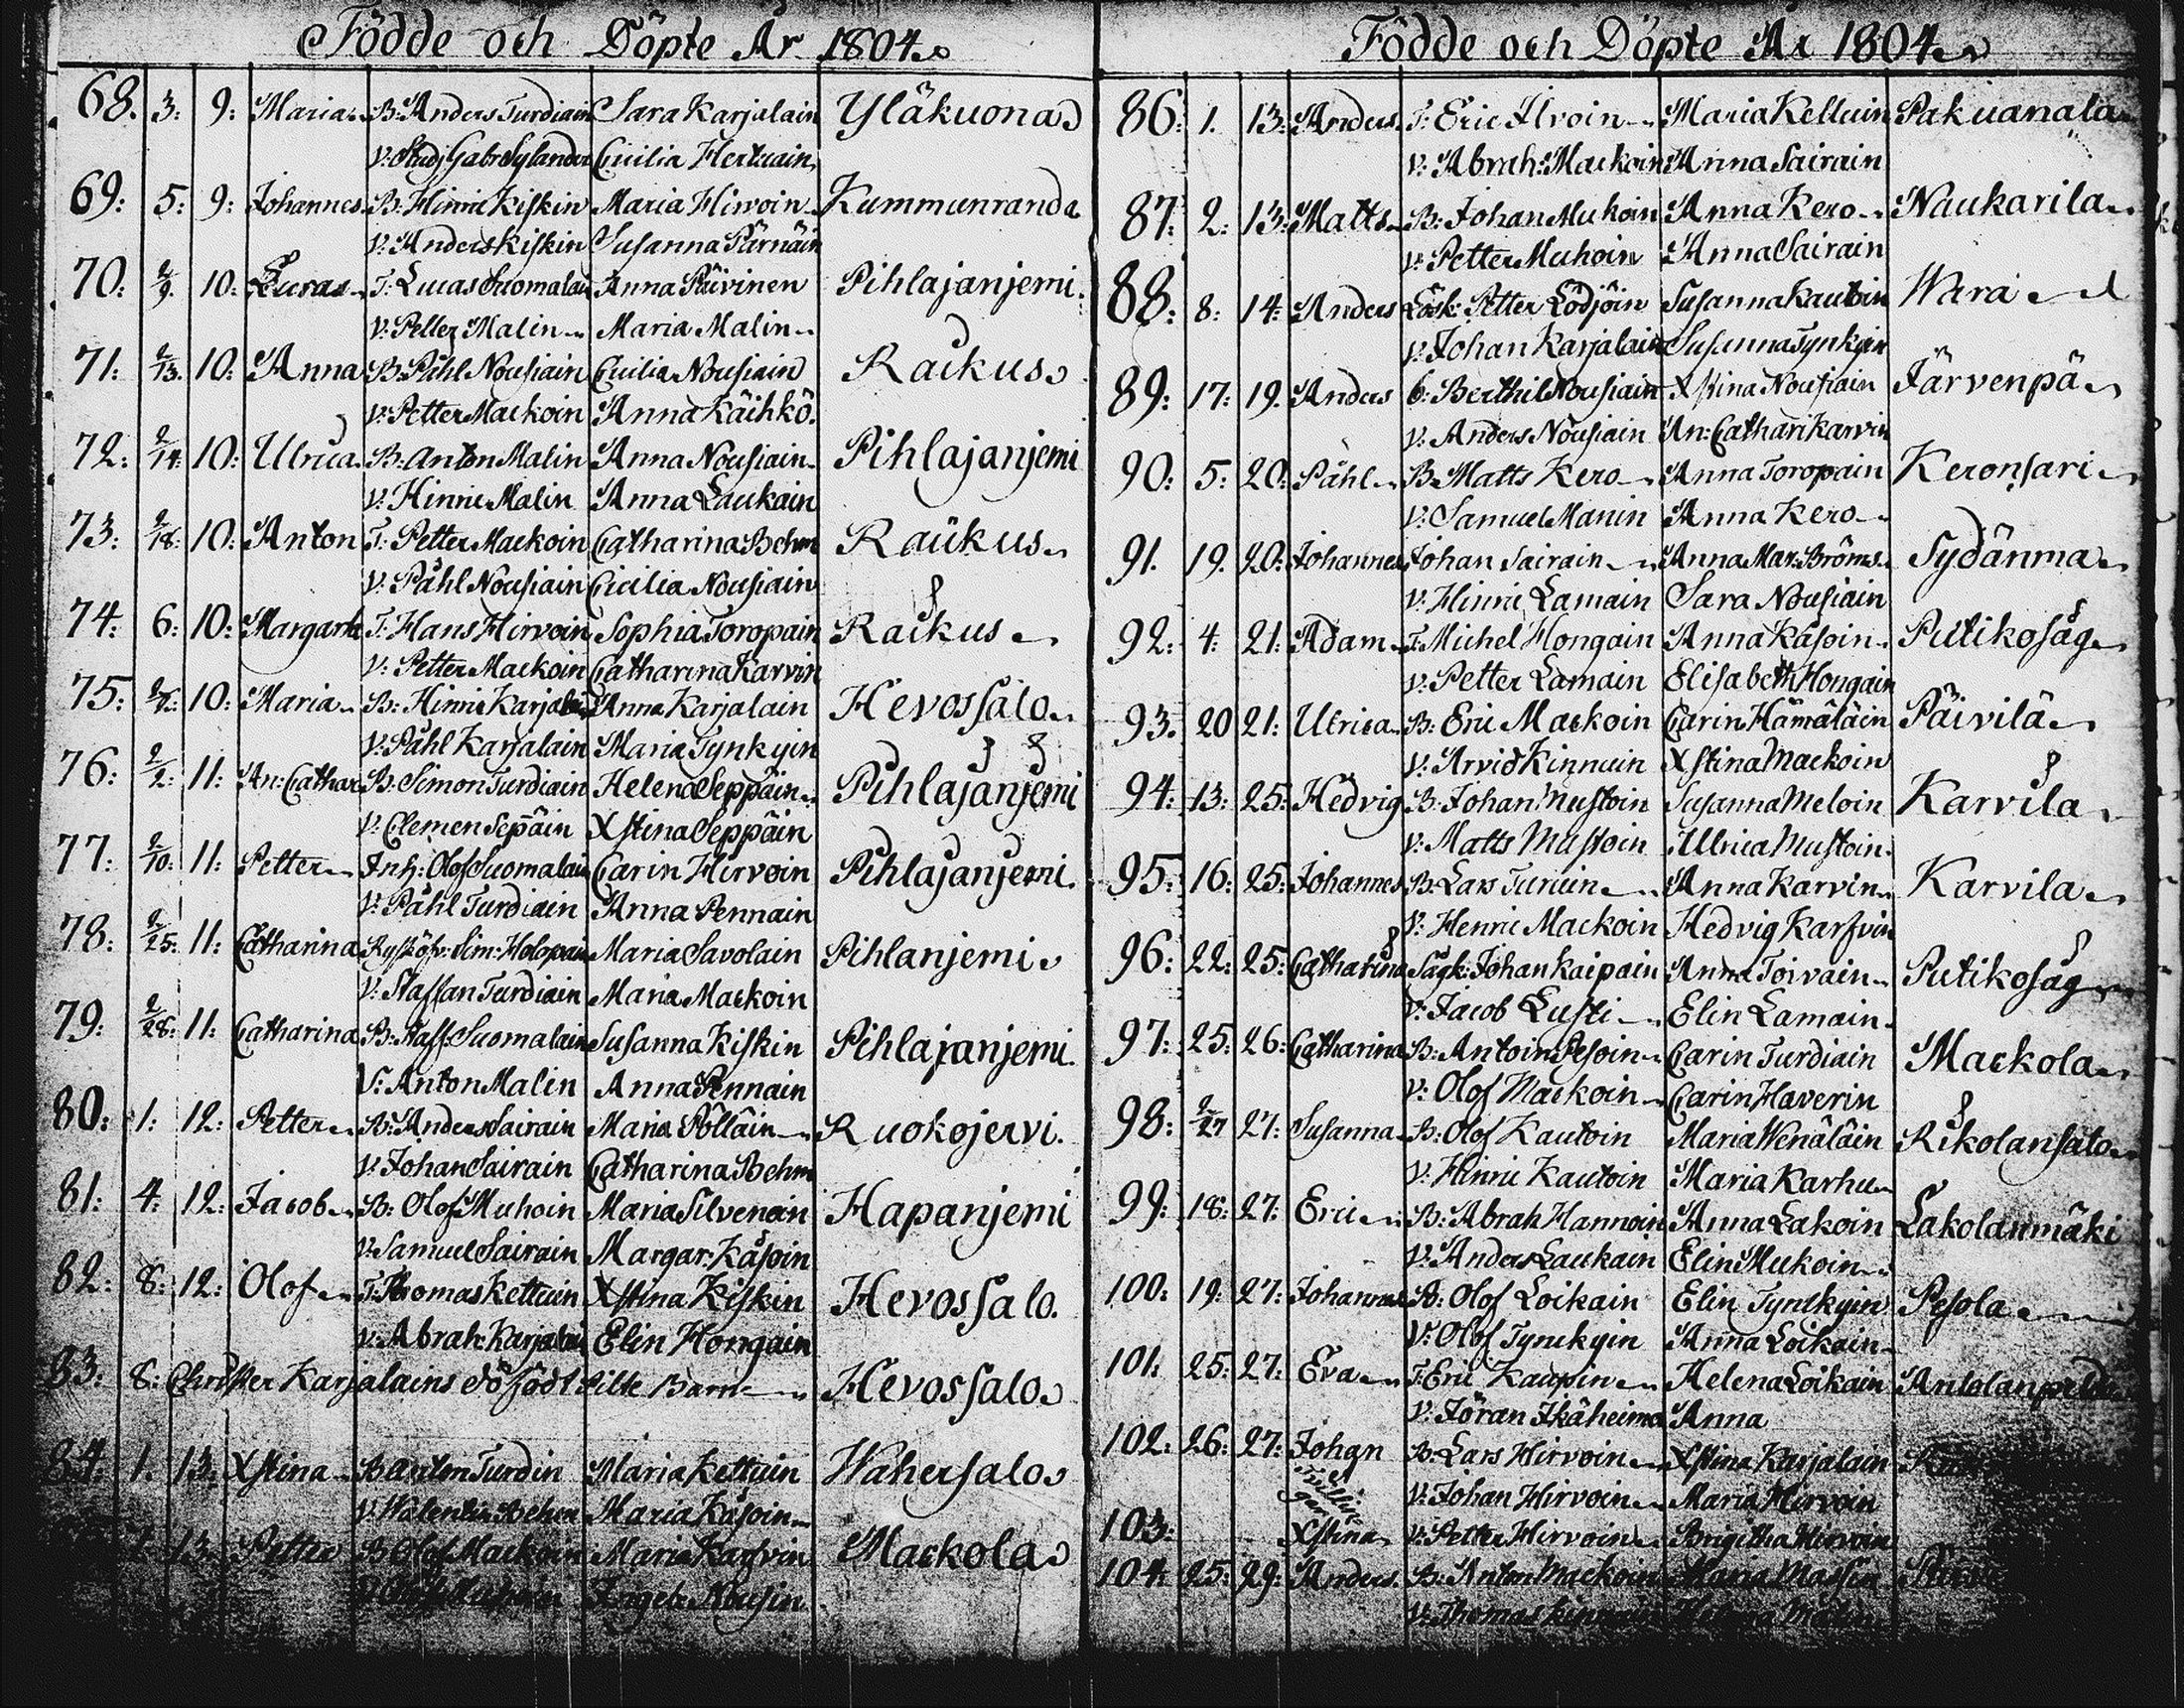 Födde och Döpte År 1804
68. 3: 9: Maria B: Anders Turdiain Sara Karjalain Yläkuona
V: Stud: Gabr Sylander Cicilia Hertuain
69: 5: 9: Johannes B: Hinric Kiskin Maria Hirvoin Kummunranda
V: Anders Kiskin Susanna Pärnäin
70: 2/9. 10: Lucas T: Lucas Suomalai Anna Päivinen Pihlajanjemi
V: Petter Malin Maria Malin
71: 2/13. 10: Anna B: Påhl Nousiain Cicilia Nousiain Raikus
V: Petter Mackoin Anna Käihkö.
72: 2/14: 10: Ulrica B: Anton Malin Anna Nousiain Pihlajanjemi
V: Hinric Malin Anna Laukain
73: 2/18: 10: Anton T: Petter Mackoin Catharina Behm Raikus
V: Påhl Nousiain Cicilia Nousiain
74: 6: 10: Margareta T: Hans Hirvoin Sophia Toropain Raikus
V: Petter Mackoin Catharina Karvin
75: 10: Maria B: Hinric Karjalai Anna Karjalain Hevossalo
V: Påhl Karjalain Maria Tynkyin
76: 2/2: 11: An: Cathar B: Simon Turdiain Helena Seppäin Pihlajanjemi
V: Clemen Sepäin Xstina Seppäin
77: 2/10: 11: Petter Inh: Olof Suomalai Carin Hirvoin Pihlajanjemi.
V: Påhl Turdiain Anna Pennain
78: 2/25: 11: Catharina Sim: Holopain Maria Savolain Pihlanjemi
V: Staffan Turdiain Maria Mackoin
79: 2/28: 11: Catharina B: Staff: Suomalain Susanna Kiskin Pihlajanjemi.
V: Anton Malin Anna Pennain
80: 1: 12: Petter B: Anders Sairain Maria Pölläin Ruokojervi.
V: Johan Sairain Catharina Behm
81: 4: 12: Jacob B: Olof Muhoin Maria Silvenoin Hapanjemi
V: Samuel Sairain Margar: Käsoin
82: 8: 12: Olof T: Thomas Kettuin Xstina Kiskin Hevossalo.
V: Abrah: Karjalai Elin Hongain
83: 8: Christer Karjalains dö födt Barn Hevossalo
84: 1. 13: Xstina B Anton Turdin Maria Kettuin Wahersalo
V: Walentin Behm Maria Käsoin
13: Petter B Olof Mackoin Maria Karfvin Mackola
Födde och Döpte År 1804
86: 1. 13: Anders T: Eric Ilvoin Maria Kettuin Pakuanala
V: Abrah: Mackoin Anna Sairain
87: 2: 13: Matts B: Johan Muhoin Anna Kero Naukarila
V: Petter Muhoin Anna Sairain
88: 8: 14: Anders Lösk: Petter Lödjöin Susanna Kautoin Wara
V: Johan Karjalain Susanna Tynkyin
89: 17: 19. Anders B: Berthil Nousiain Xstina Nousiain Järvenpä
V: Anders Nousiain An: Cathari Karvin
90: 5: 20: Påhl B: Matts Kero Anna Toropain Keronsari
V: Samuel Manin Anna Kero
91. 19. 20: Johannes Johan Sairain Anna Mar: Broms Sydänma
V: Hinric Lamain Sara Nousiain
92: 4: 21: Adam T: Michel Hongain Anna Käsoin Putikosåg
V: Petter Lamain Elisabeth Hongain
93. 20 21: Ulrica B: Eric Mackoin Carin Hämäläin Päivilä
V: Arvid Kinnuin Xstina Mackoin
94: 13: 25: Hedvig B: Johan Mustoin Susanna Meloin Karvila
V: Matts Mustoin Ulrica Mustoin
95: 16: 25: Johannes B: Lars Turuin Anna Karvin Karvila
V: Henric Mackoin Hedvig Karfvin
96: 22: 25: Catharina Sågk: Johan Kaipain Anna Toivain Putikosåg
V: Jacob Lusti Elin Lamain
97: 25: 26: Catharina B: Antoin Pesoin Carin Turdiain Mackola
V: Olof Mackoin Carin Haverin
98: 2/27 27: Susanna B: Olof Kautoin Maria Wenäläin Rikolansalo
V: Hinric Kautoin Maria Karhu
99: 18: 27: Eric B: Abrah Hannoin Anna Lakoin Lakolanmäki
V: Anders Laukain Elin Mukoin
100: 19: 27: Johannes B: Olof Loikain Elin Tynckyin Pesola
V: Olof Tynckyin Anna Loikain
101: 25: 27: Eva T: Eric Kaupin Helena Loikain
V: Jöran Ikäheimo Anna
102: 26: 27: Johan B: Lars Hirvoin Xstina Karjalain
V: Johan Hirvoin Maria Hirvoin
103: Xstina V: Petter Hirvoin Brigitha Hirvoin
104: 25: 29: Anders B: Anton Mackoin Maria Massin
V: Thomas Helena